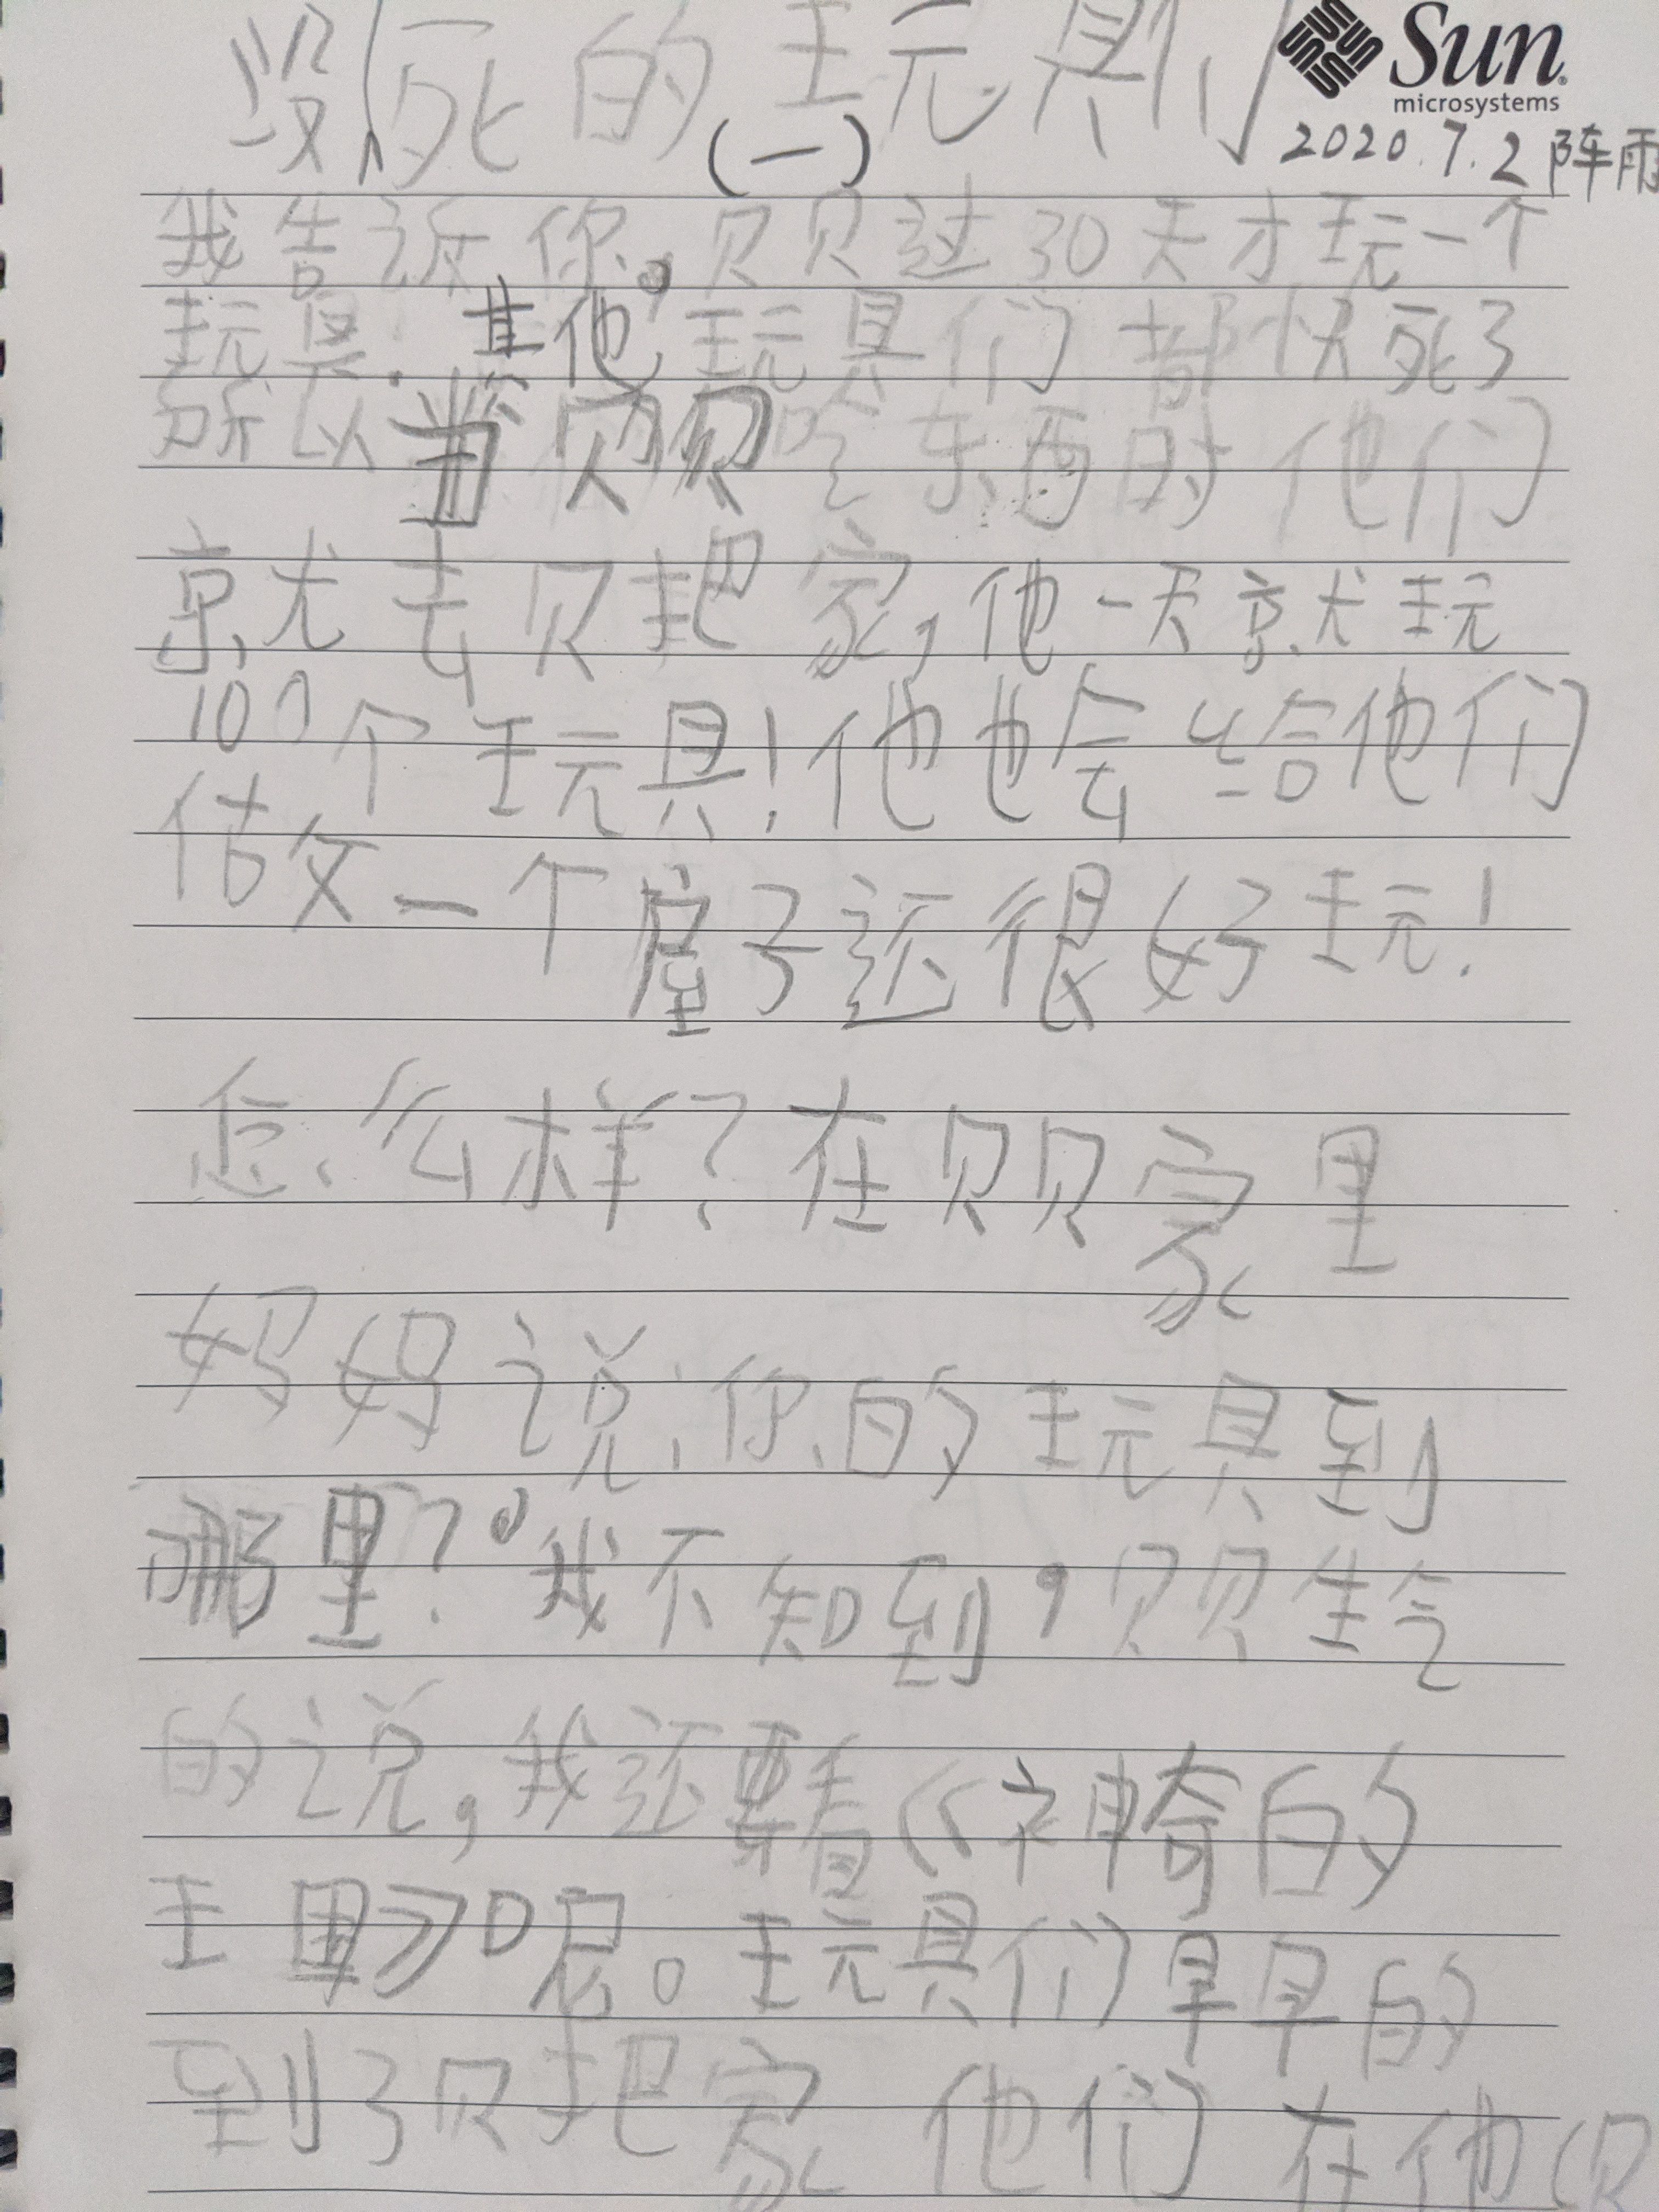 Sun
microsystems
死的玩具们
(一)
2020.7.2 阵雨
我告诉你,贝贝过30天才玩一个
玩具.其他玩具们都快死了
所以当贝贝吃东西时他们
就去贝把家,他一天就玩
100个玩具!他也会给他们
做一个屋子还很好玩!
怎么样?在贝贝家里
妈妈说:你的玩具到
哪里?我不知到,贝贝生气
的说,我还要看《神奇的
王国》呢。玩具们早早的
到了贝把家 他们在他